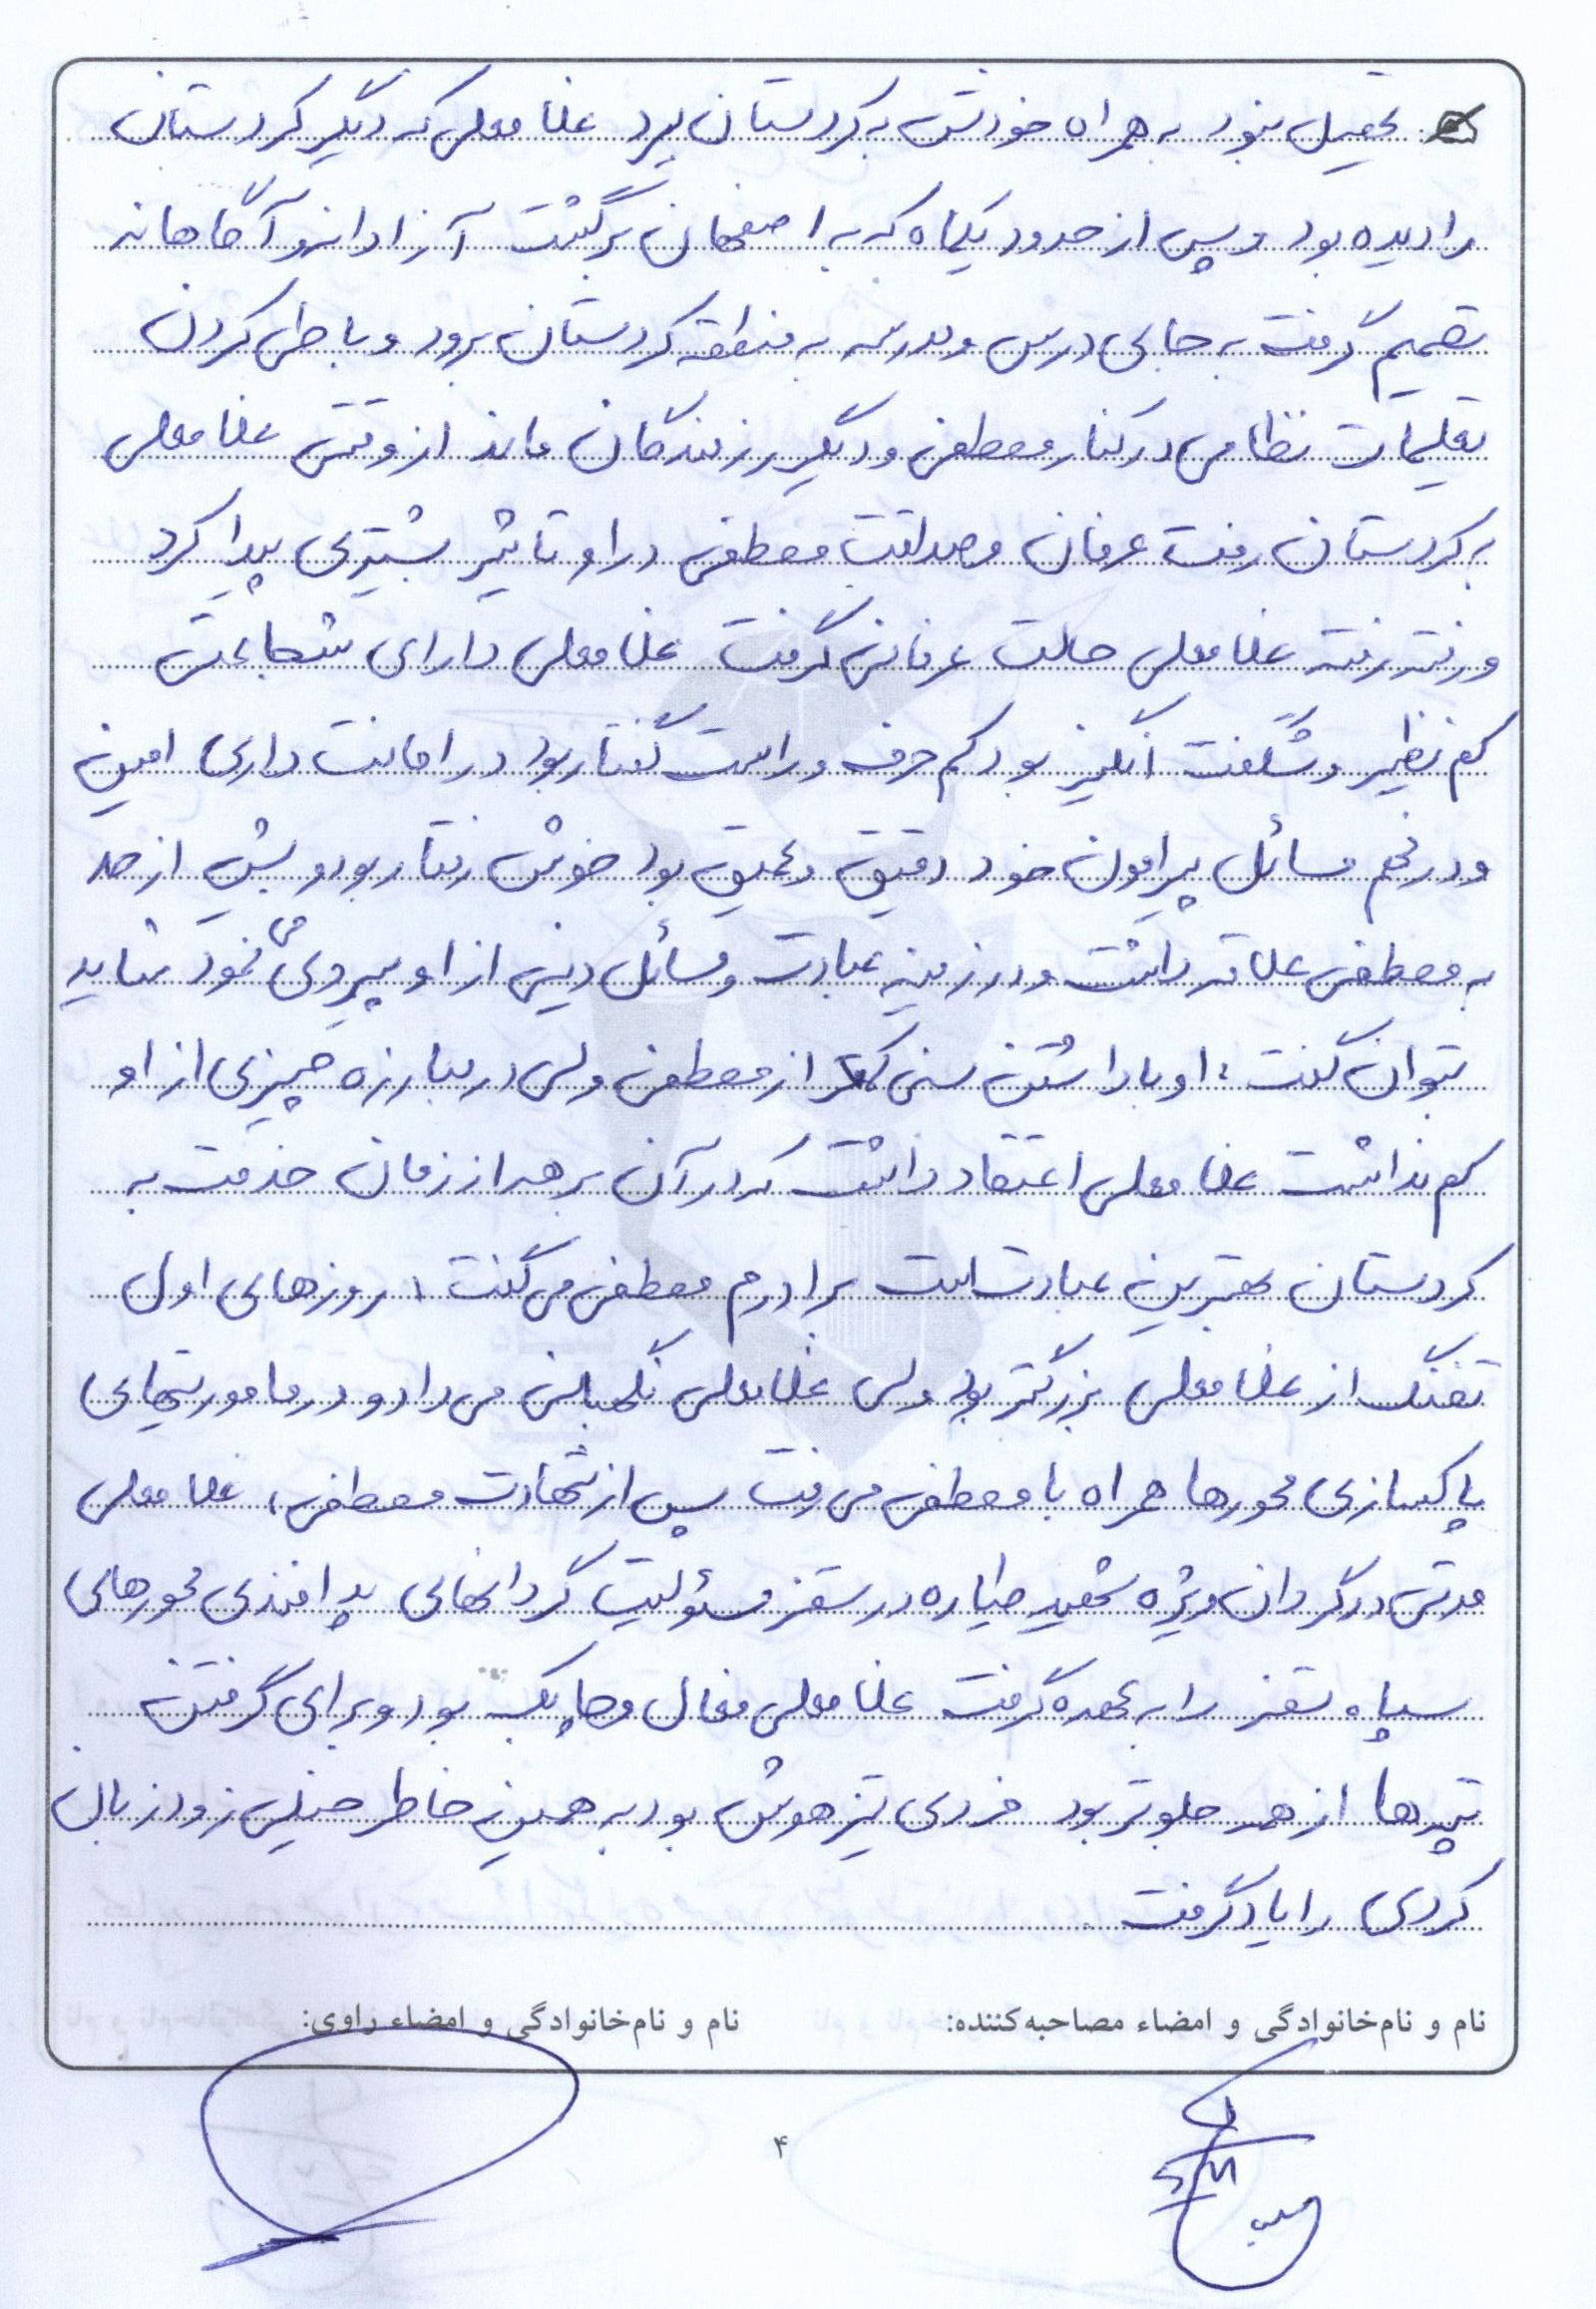 تحصیل بنود به همراه خودش به کردستان برد غلامعلی که دیگر کردستان
را دیده بود و پس از حدود یکماه که به اصفهان برگشت آزادانه و آگاهانه
تصمیم گرفت به جای درس و مدرسه به منطقه کردستان برود و با طی کردن
تعلیمات نظامی در کنار مصطفی و دیگر رزمندگان ماند از وقتی غلامعلی
به کردستان رفت عرفان و صداقت مصطفی در او تاثیر بیشتری پیدا کرد
و رفته رفته غلامعلی حالت عرفانی گرفت غلامعلی دارای شجاعتی
کم نظیر و شگفت انگیز بود کم حرف و راست گفتار بود در امانت داری امین
و در فهم مسائل پیرامون خود دقیق و عمیق بود خوش رفتار بود و بیش از حد
به مصطفی علاقه داشت و در زمینه عبادت و مسائل دینی از او پیروی می نمود شاید
بتوان گفت: او با داشتن سنی کمتر از مصطفی ولی در مبارزه چیزی از او
کم نداشت غلامعلی اعتقاد داشت که در آن برهه از زمان خدمت به
کردستان بهترین عبادت است برادرم مصطفی می گفت: روزهای اول
تفنگ از غلامعلی بزرگتر بود ولی غلامعلی نگهبانی می داد و در ماموریتهای
پاکسازی محورها همراه با مصطفی می رفت پس از شهادت مصطفی، غلامعلی
مدتی در گردان ویژه شهید طیاره در سقز مسئولیت گردانهای پدافندی محورهای
سپاه سقز را به عهده گرفت غلامعلی فعال و چابک بود و برای گرفتن
تپه ها از همه جلوتر بود فردی تیزهوش بود به همین خاطر خیلی زود زبان
کردی را یاد گرفت
نام و نام‌خانوادگی و امضاء مصاحبه‌کننده: نام و نام‌خانوادگی و امضاء راوی:
۴